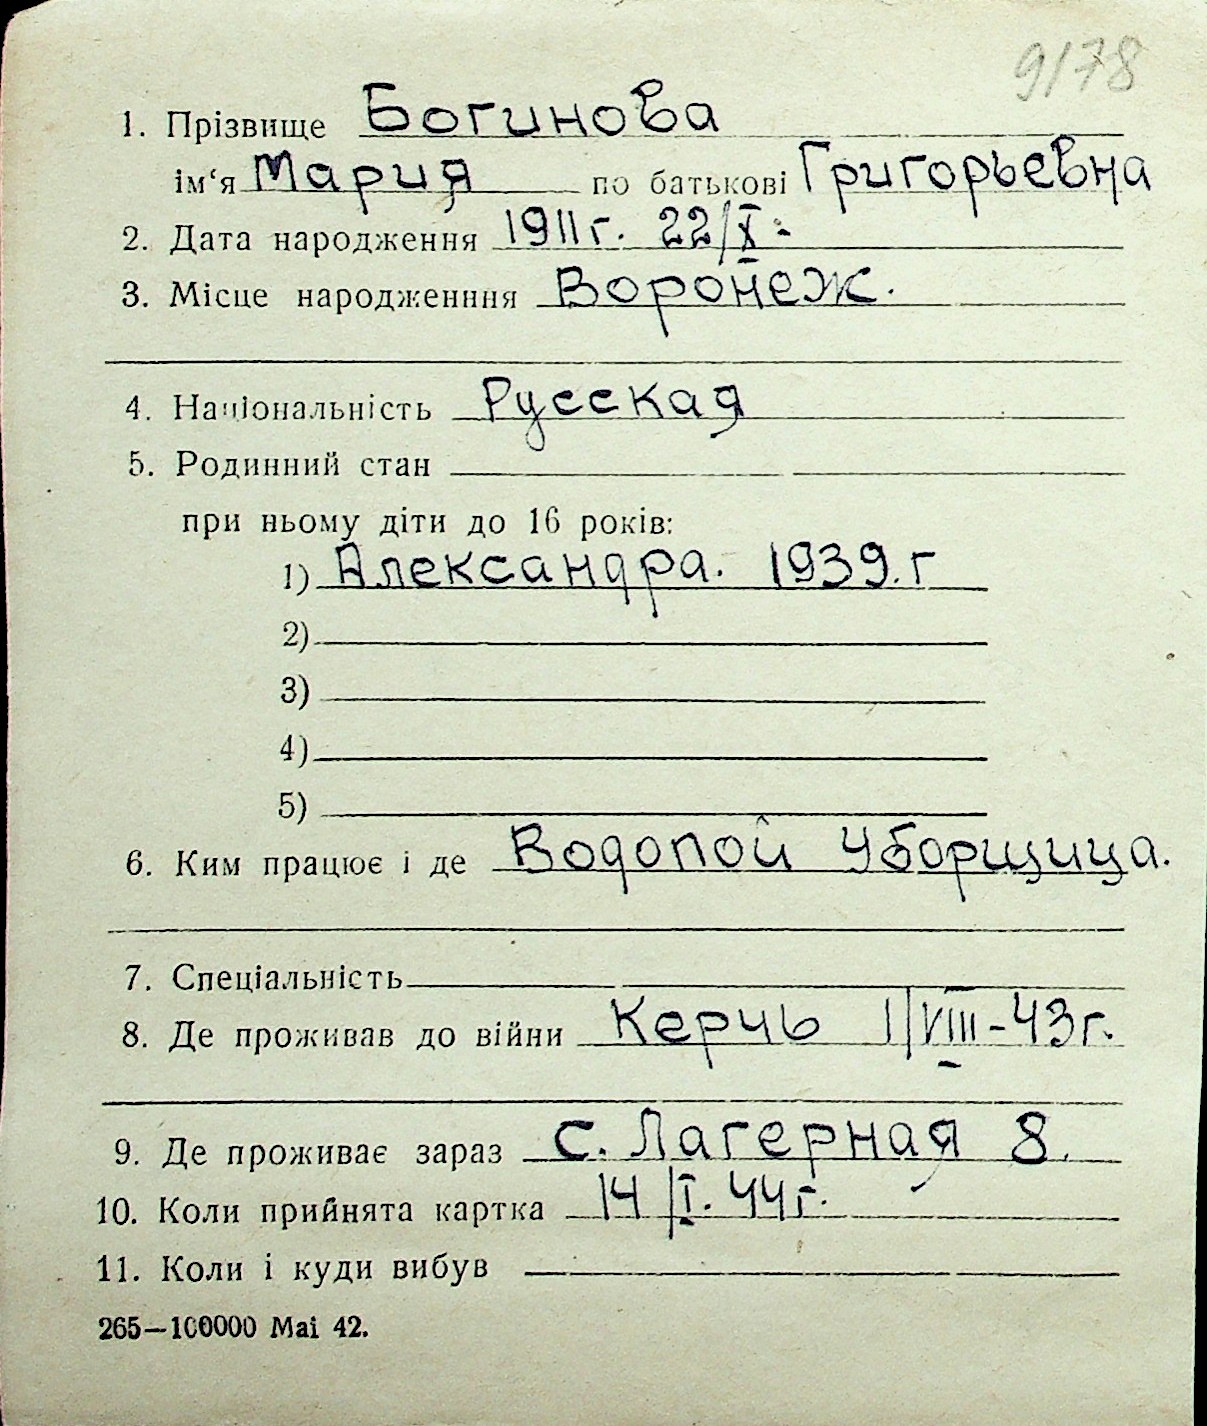 9178
1. Прізвище Богинова
ім‘я Мария по батькові Григорьевна
2. Дата народження 1911г. 22/X-
3. Місце народженння Воронеж.
4. Національність Русская
5. Родинний стан
при ньому діти до 16 років:
1) Александра. 1939.г
2)
3)
4)
5)
6. Ким працює і де Водопой Уборщица.
7. Спеціальність
8. Де проживав до війни Керчь 1/VIII-43г.
9. Де проживає зараз с. Лагерная 8.
10. Коли прийнята картка 14/I. 44г.
11. Коли і куди вибув
265—100000 Mai 42.